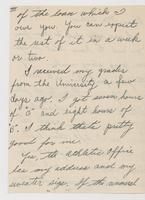 III
of the loan which I
owe you. You can expect
the rest of it in a week
or two.
I received my grades
from the University a few
days ago. I got seven hours
of "B" and eight hours of
"C". I think that's pretty
good for me.
Yes, the athletic office
has my address and my
sweater size. If the